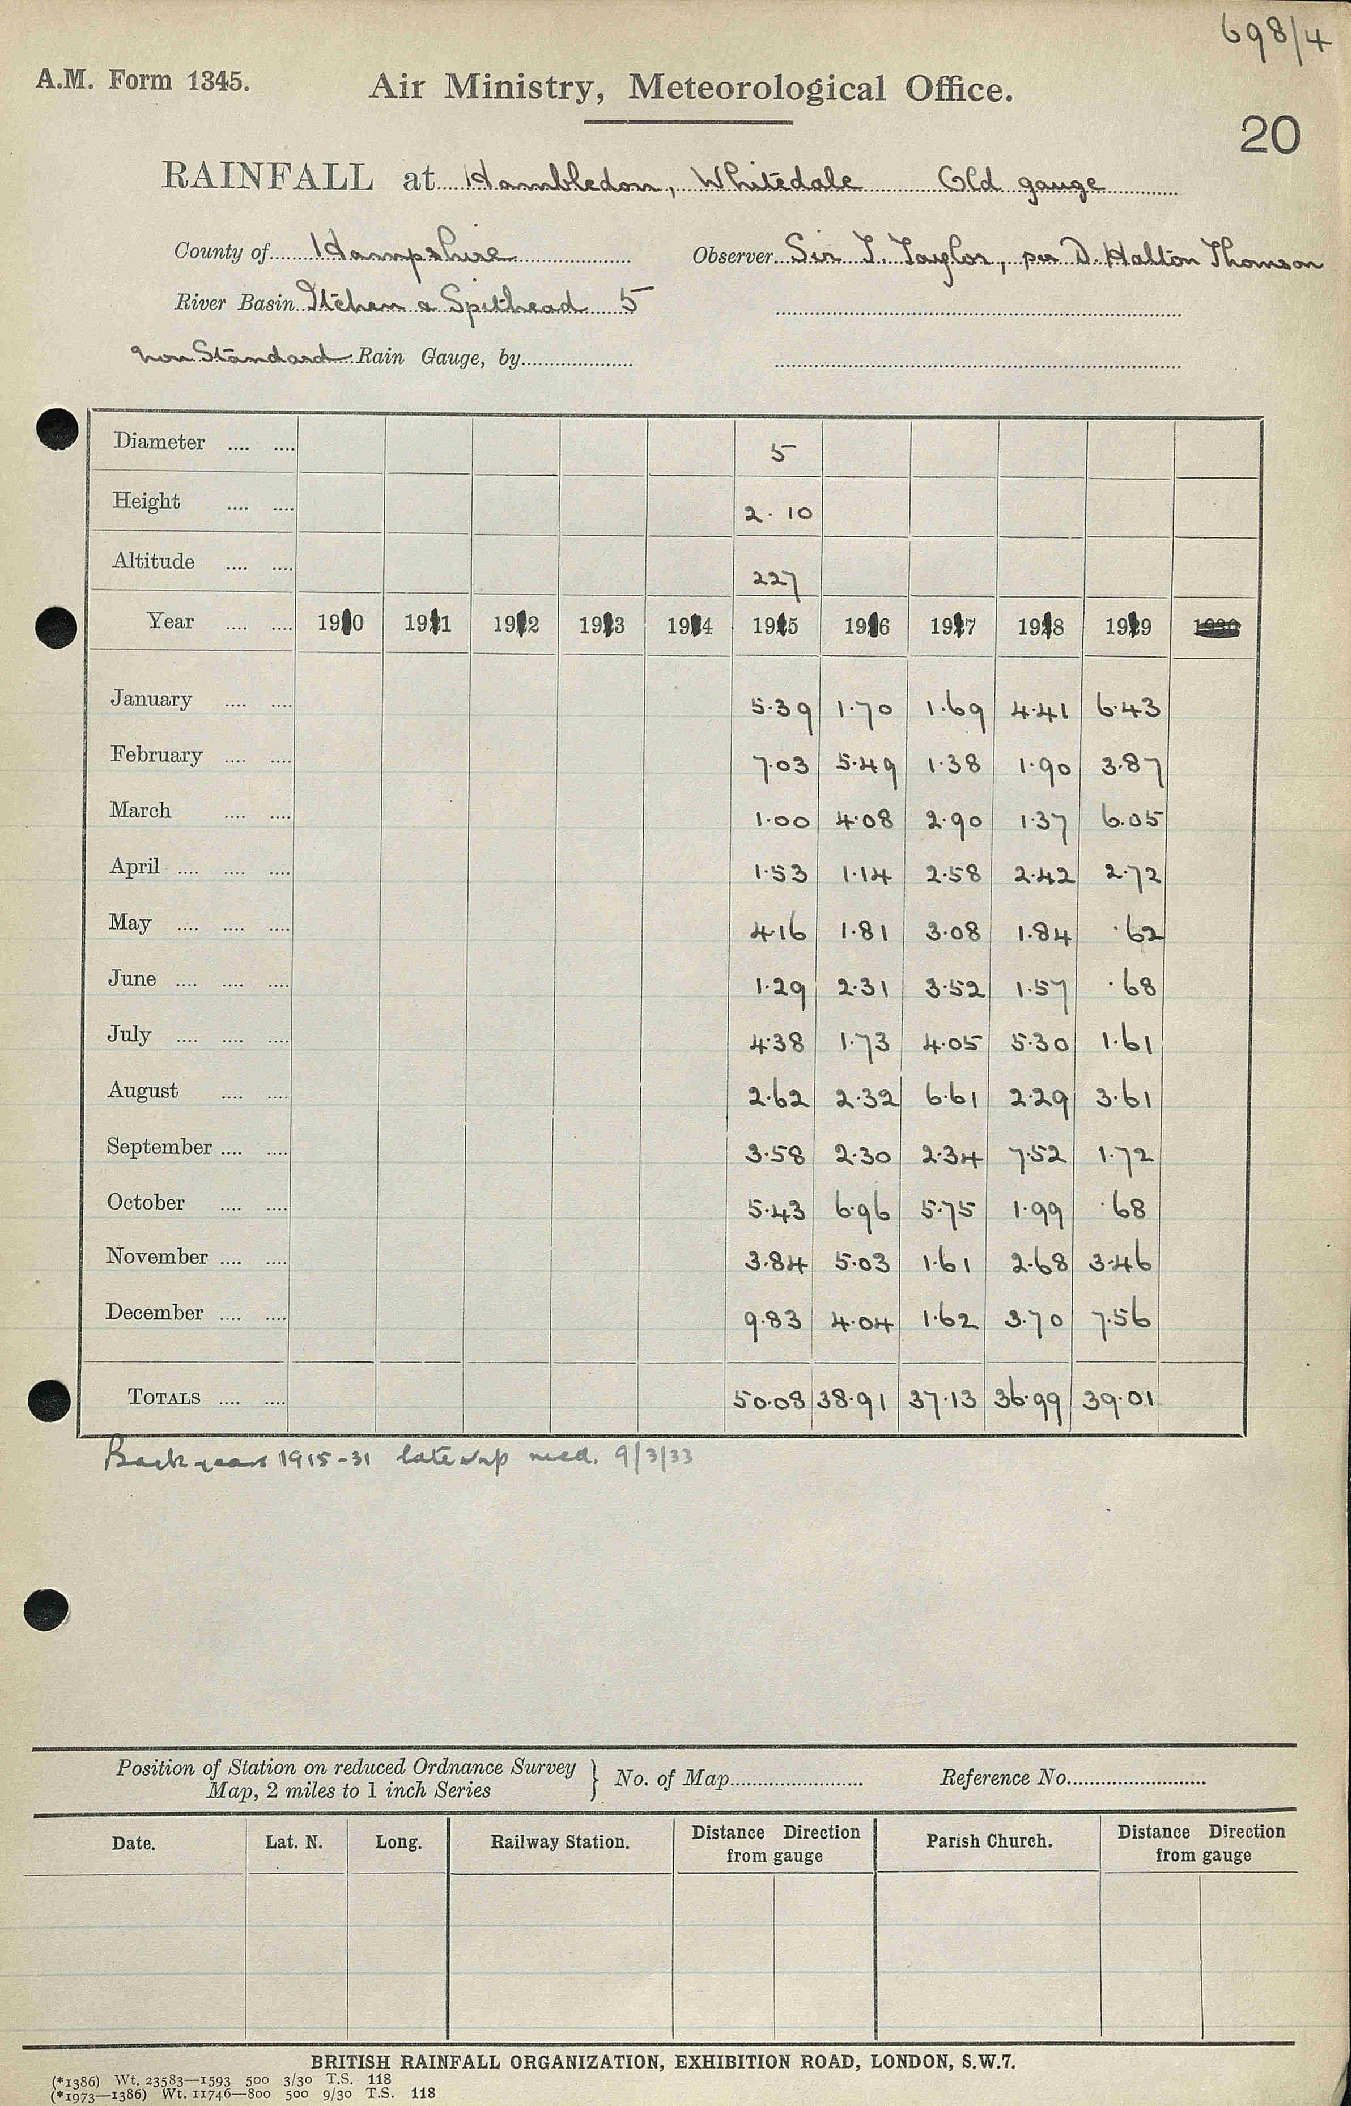 698/4
A.M. Form 1345. Air Ministry, Meteorological Office.
20
RAINFALL at Hambledon, Whitedale Old gauge
County of Hampshire Observer Sir F. Taylor, per D. Halton Thomson
River Basin Itchen & Spithead 5
non Standard Rain Gauge, by
Diameter 5
Height 2.10
Altitude 227
Year 1910 1911 1912 1913 1914 1915 1916 1917 1918 1919
January 5.39 1.70 1.69 4.41 6.43
February 7.03 5.49 1.38 1.90 3.87
March 1.00 4.08 2.90 1.37 6.05
April 1.53 1.14 2.58 2.42 2.72
May 4.16 1.81 3.08 1.84 .62
June 1.29 2.31 3.52 1.57 .68
July 4.38 1.73 4.05 5.30 1.61
August 2.62 2.32 6.61 2.29 3.61
September 3.58 2.30 2.34 7.52 1.72
October 5.43 6.96 5.75 1.99 .68
November 3.84 5.03 1.61 2.68 3.46
December 9.83 4.04 1.62 3.70 7.56
TOTALS 50.08 38.91 37.13 36.99 39.01
Back years 1915-31 9/3/33
Position of Station on reduced Ordnance Survey
Map, 2 miles to 1 inch Series } No. of Map Reference No.
Date. Lat. N. Long. Railway Station. Distance Direction from gauge Parish Church. Distance Direction from gauge
BRITISH RAINFALL ORGANIZATION, EXHIBITION ROAD, LONDON, S.W.7.
(*1386) Wt. 23583—1593 500 3/30 T.S. 118
(*1973—1386) Wt. 11746—800 500 9/30 T.S. 118